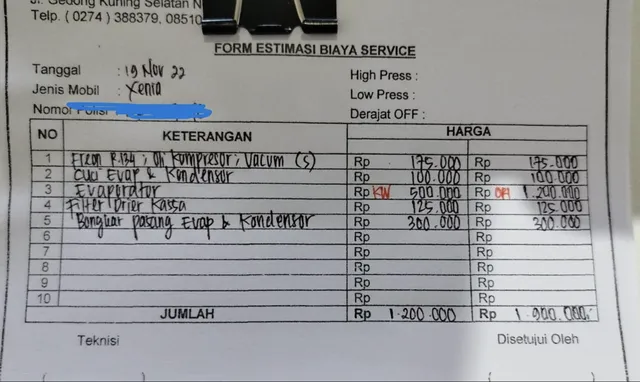 Jl. Gedong Kuning Selatan N
Telp. ( 0274 ) 388379, 08510
FORM ESTIMASI BIAYA SERVICE
Tanggal : 19 Nov 22
High Press :
Jenis Mobil : Xenia
Low Press :
Nomor Polisi
Derajat OFF :
NO KETERANGAN HARGA
1 Freon R.134, Oli Kompresor, Vacum (s) Rp 175.000 Rp 175.000
2 Cuci Evap & Kondensor Rp 100.000 Rp 100.000
3 Evaporator Rp KW 500.000 Rp ORI 1.200.000
4 Filter Drier Kassa Rp 125.000 Rp 125.000
5 Bongkar pasang Evap & Kondensor Rp 300.000 Rp 300.000
6 Rp Rp
7 Rp Rp
8 Rp Rp
9 Rp Rp
10 Rp Rp
JUMLAH Rp 1.200.000 Rp 1.900.000,-
Teknisi Disetujui Oleh
( ) ( )